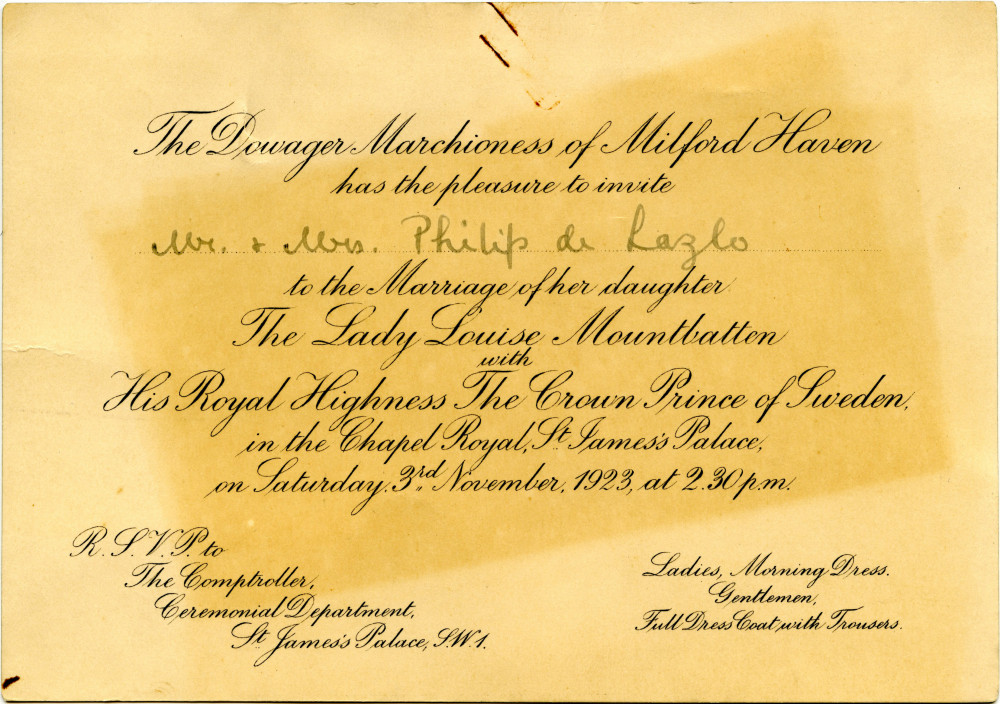 The Dowager Marchioness of Milford Haven
has the pleasure to invite
Mr. & Mrs. Philip de Lazlo
to the Marriage of her daughter
The Lady Louise Mountbatten
with
His Royal Highness The Crown Prince of Sweden,
in the Chapel Royal, St. James's Palace,
on Saturday, 3rd November, 1923, at 2.30 p.m.
R.S.V.P. to
The Comptroller,
Ceremonial Department,
St. James's Palace, S.W.1.
Ladies, Morning Dress.
Gentlemen,
Full Dress Coat with Trousers.